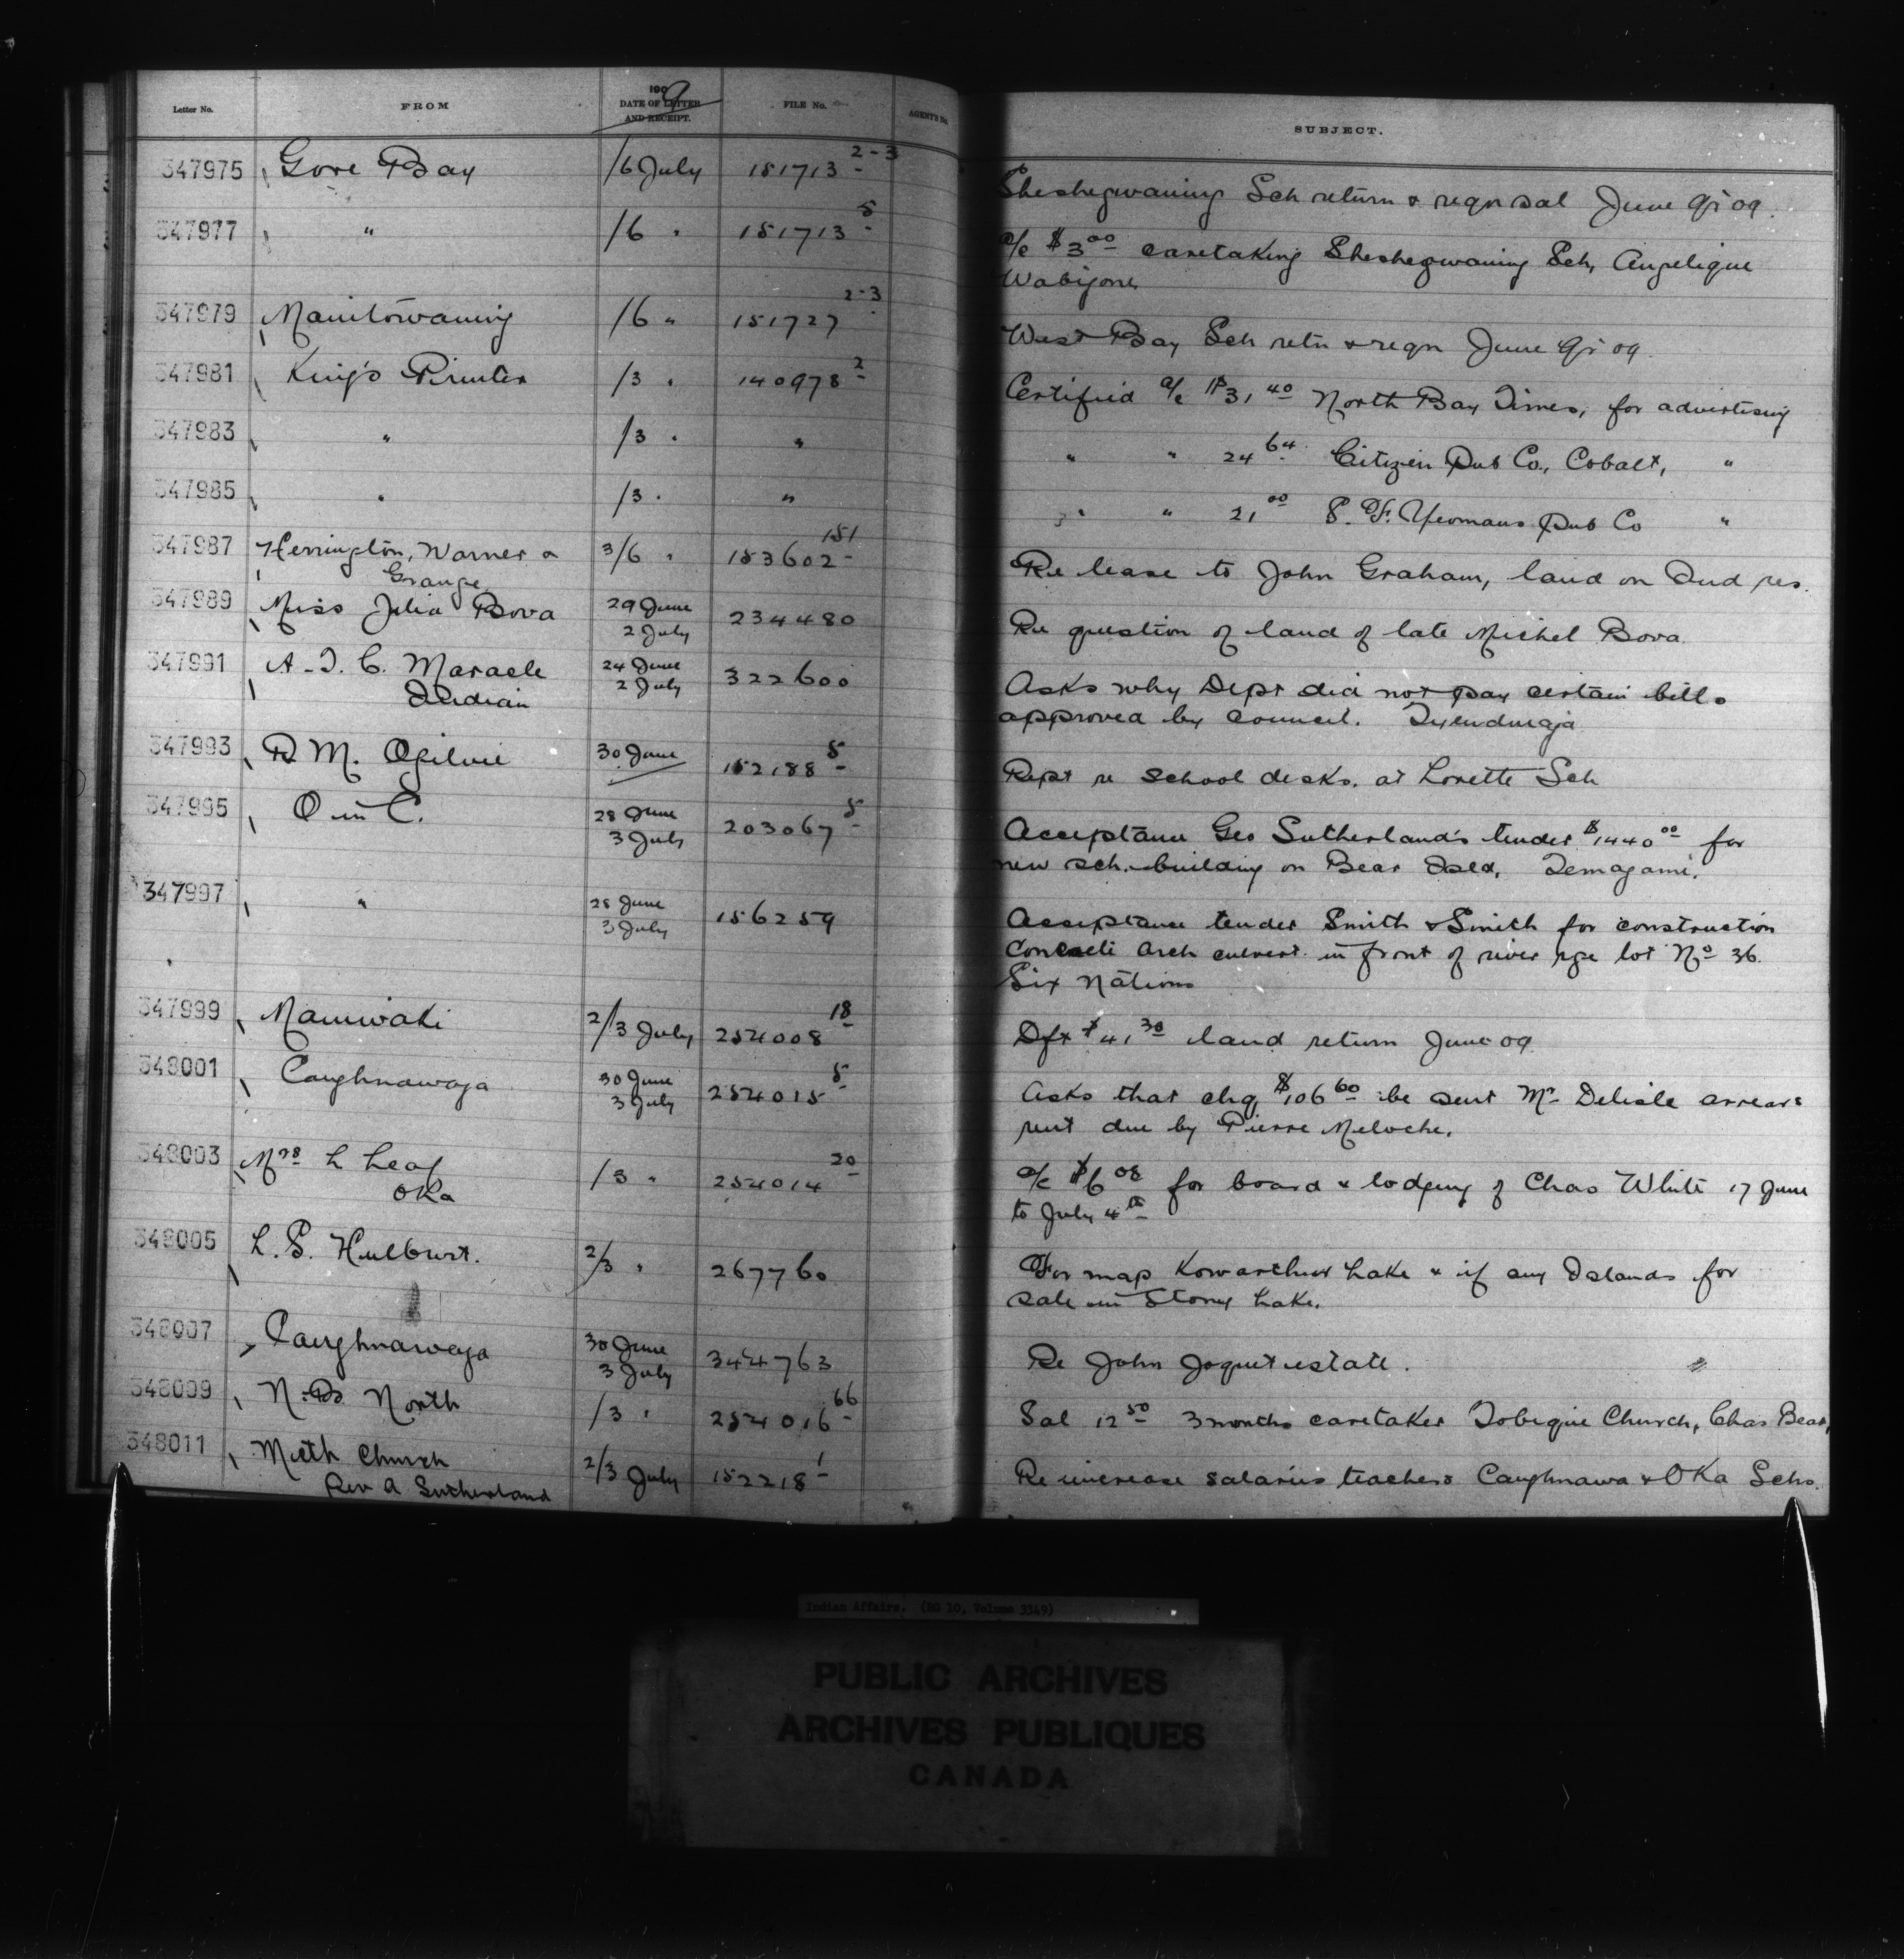 Letter No. FROM 1909 DATE OF LETTER AND RECEIPT. FILE No. AGENT'S No. SUBJECT.
347975 Gore Bay /6 July 151713 2-3 Sheshegwaning Sch return & reqn sal June qr 09.
347977 " /6 " 151713 5 a/c $3 00 caretaking Sheshegwaning Sch, Angelique
Wabigone
347979 Manitowaning /6 " 151727 2-3 West Bay Sch retn & reqn June qr 09.
347981 King's Printer /3 " 140978 2 Certified a/c $31 40 North Bay Times, for advertising
347983 " /3 " " " " 24 64 Citizen Pub Co., Cobalt, "
347985 " /3 " " " " 21 00 P. F. Yeomans Pub Co "
347987 Herrington, Warner & 3/6 " 153602 151 Re lease to John Graham, land on Ind res.
Grange
347989 Miss Julia Bova 29 June 234480 Re question of land of late Michel Bova.
2 July
347991 A. I. C. Maracle 24 June 322600 Asks why Dept did not pay certain bills
Indian 2 July approved by council. Tyendinaga
347993 R M. Ogilvie 30 June 152188 5 Rept re school desks, at Lorette Sch
347995 O in C. 28 June 203067 5 Acceptance Geo Sutherland's tender $1440 00 for
3 July new sch. building on Bear Isld, Temagami.
347997 " 28 June 156259 Acceptance tender Smith & Smith for construction
3 July concrete arch culvert in front of river rge lot No 36.
Six Nations
347999 Maniwaki 2/3 July 254008 18 Dft $41 30 land return June 09
348001 Caughnawaga 30 June 254015 5 Asks that chq $106 60 be sent Mr Delisle arrears
3 July rent due by Pierre Meloche.
348003 Mrs L Leaf /3 " 254014 20 a/c $6 08 for board & lodging of Chas White 17 June
Oka to July 4th
348005 L. S. Hulburt. 2/3 " 267760 For map Kowarthur Lake & if any Islands for
sale in Stoney Lake.
348007 Caughnawaga 30 June 344763 Re John Joquet estate.
3 July
348009 N. B. North /3 " 254016 66 Sal 12 50 3 months caretaker Tobique Church, Chas Bear,
348011 Meth Church 2/3 July 152218 1 Re increase salaries teachers Caughnawa & Oka Schs.
Rev A Sutherland
Indian Affairs. (RG 10, Volume 3349)
PUBLIC ARCHIVES
ARCHIVES PUBLIQUES
CANADA